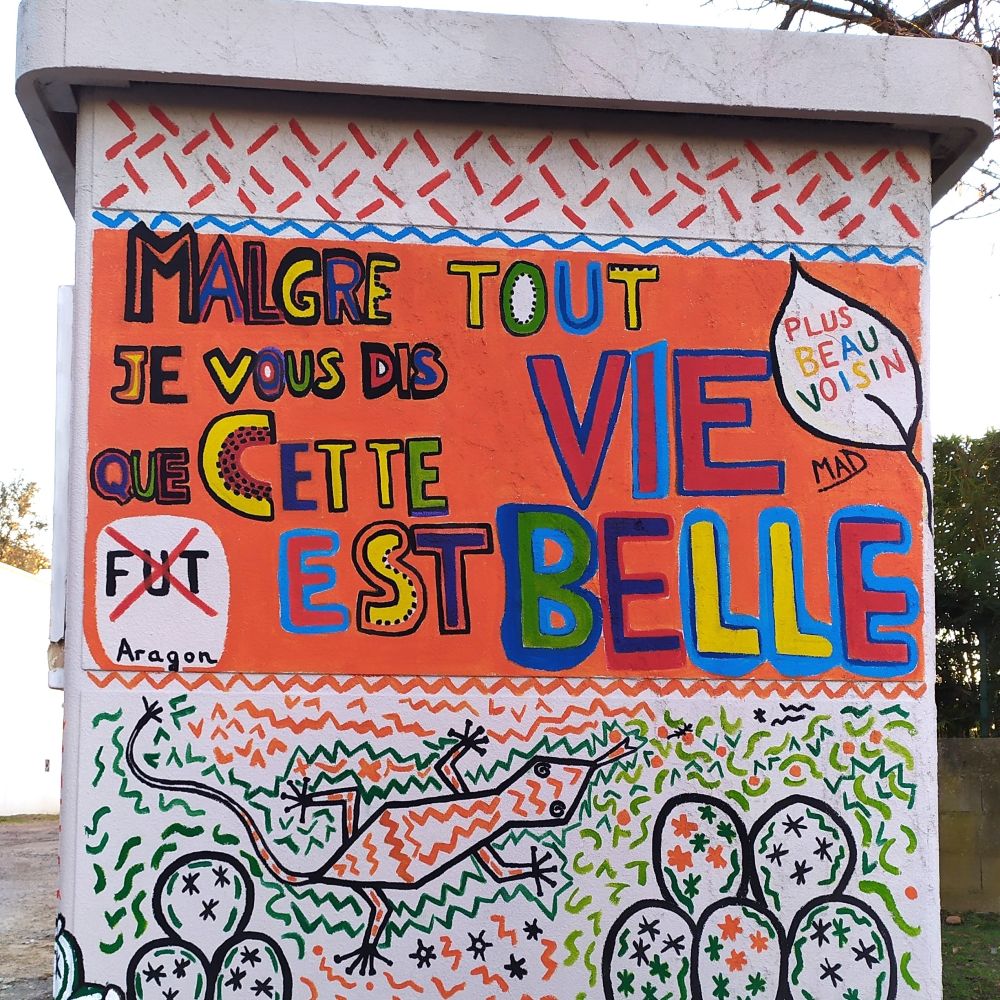 MALGRE TOUT
JE VOUS DIS
QUE CETTE
VIE
EST BELLE
PLUS
BEAU
VOISIN
MAD
FUT
Aragon